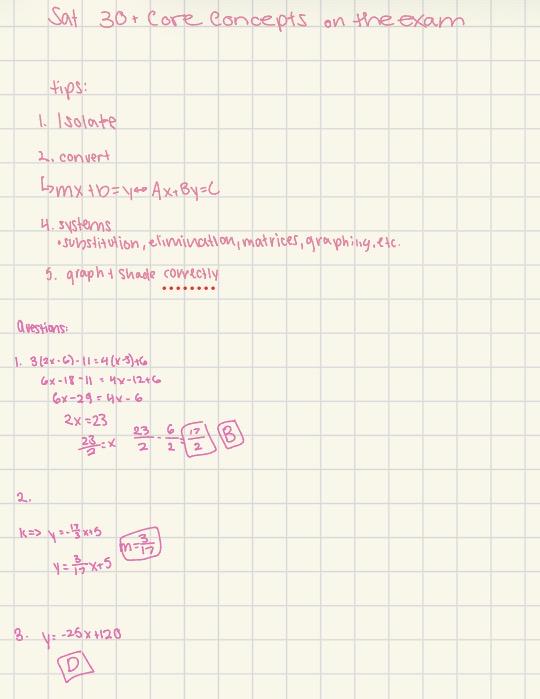 Sat 30+ Core Concepts on the exam
tips:
1. Isolate
2. convert
↳ mx+b=y ↔ Ax+By=C
4. systems
• substitution, elimination, matrices, graphing, etc.
5. graph + shade correctly
Questions:
1. 3(2x-6)-11=4(x-3)+6
6x-18-11=4x-12+6
6x-29=4x-6
2x=23
23/2=x 23/2 - 6/2 = 17/2 B
2.
k=> y=-17/3x+5
m=3/17
y=3/17x+5
3. y=-25x+120
D